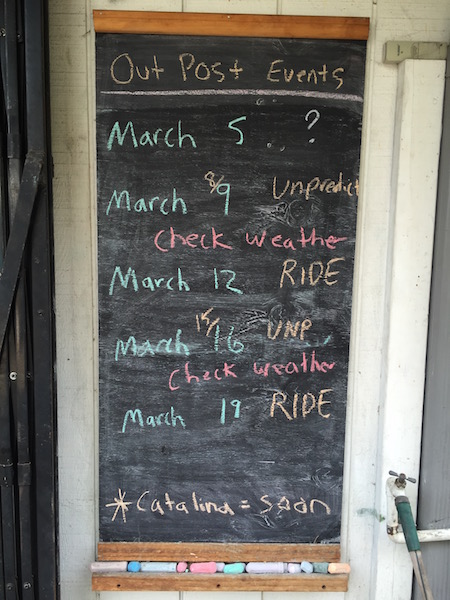 Out Post Events
March 5 ..?
March 8/9 Unpredict
check weather
March 12 RIDE
March 15/16 UNP
check weather
March 19 RIDE
*Catalina = soon